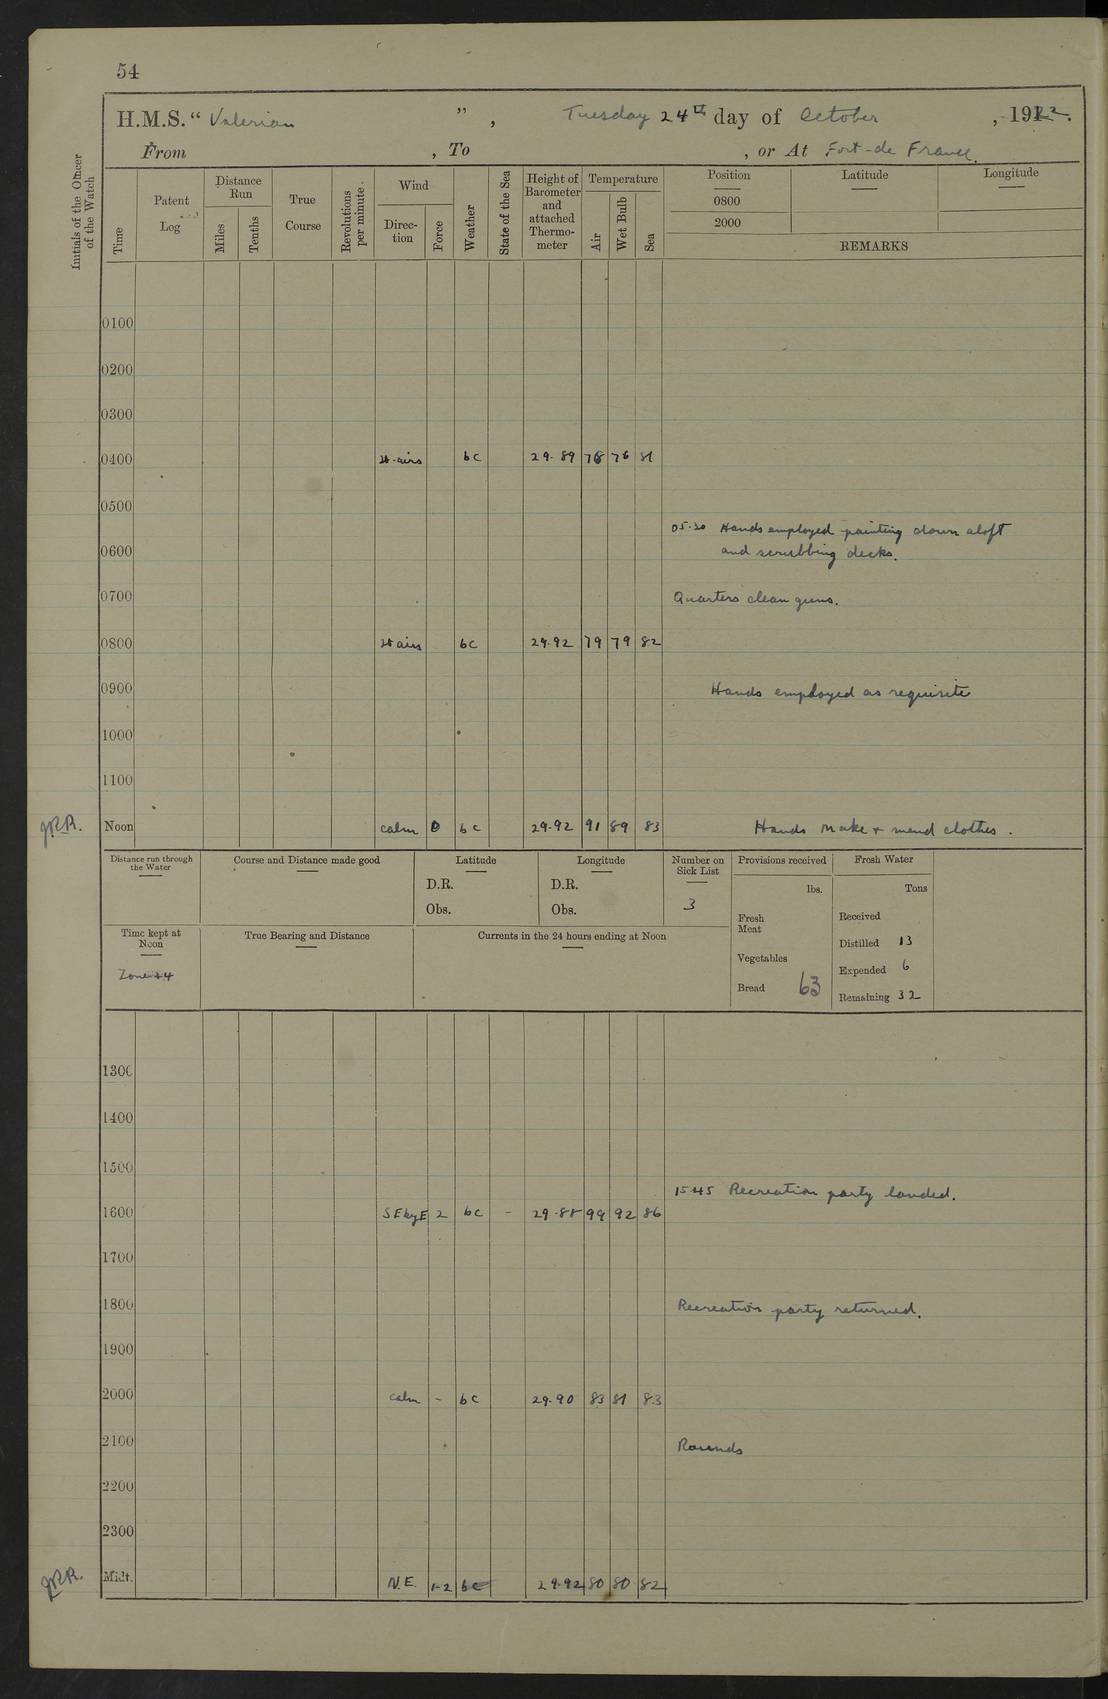 54
H.M.S. “ Valerian ”, Tuesday 24th day of October, 1922.
From , To , or At Fort-de France.
Initials of the Officer of the Watch
Time
Patent Log
Distance Run
Miles
Tenths
True Course
Revolutions per minute.
Wind
Direction
Force
Weather
State of the Sea
Height of Barometer and attached Thermometer
Temperature
Air
Wet Bulb
Sea
Position
0800
2000
Latitude
Longitude
REMARKS
0100
0200
0300
0400 lt airs bc 29.89 78 76 81
0500
05.30 Hands employed painting down aloft
0600 and scrubbing decks.
0700 Quarters clean guns.
0800 lt airs bc 29.92 79 79 82
0900 Hands employed as requisite
1000
1100
JRR. Noon calm 0 bc 29.92 91 89 83 Hands make + mend clothes.
Distance run through the Water
Course and Distance made good
Latitude
D.R.
Obs.
Longitude
D.R.
Obs.
Number on Sick List
3
Provisions received
lbs.
Fresh Meat
Vegetables
Bread 63
Fresh Water
Tons
Received
Distilled 13
Expended 6
Remaining 32
Time kept at Noon
Zone +4
True Bearing and Distance
Currents in the 24 hours ending at Noon
1300
1400
1500
1545 Recreation party landed.
1600 SEbyE 2 bc - 29.88 99 92 86
1700
1800 Recreation party returned.
1900
2000 calm - bc 29.90 83 81 83
2100 Rounds
2200
2300
JRR. Midt. N.E. 1-2 bc 29.92 80 80 82